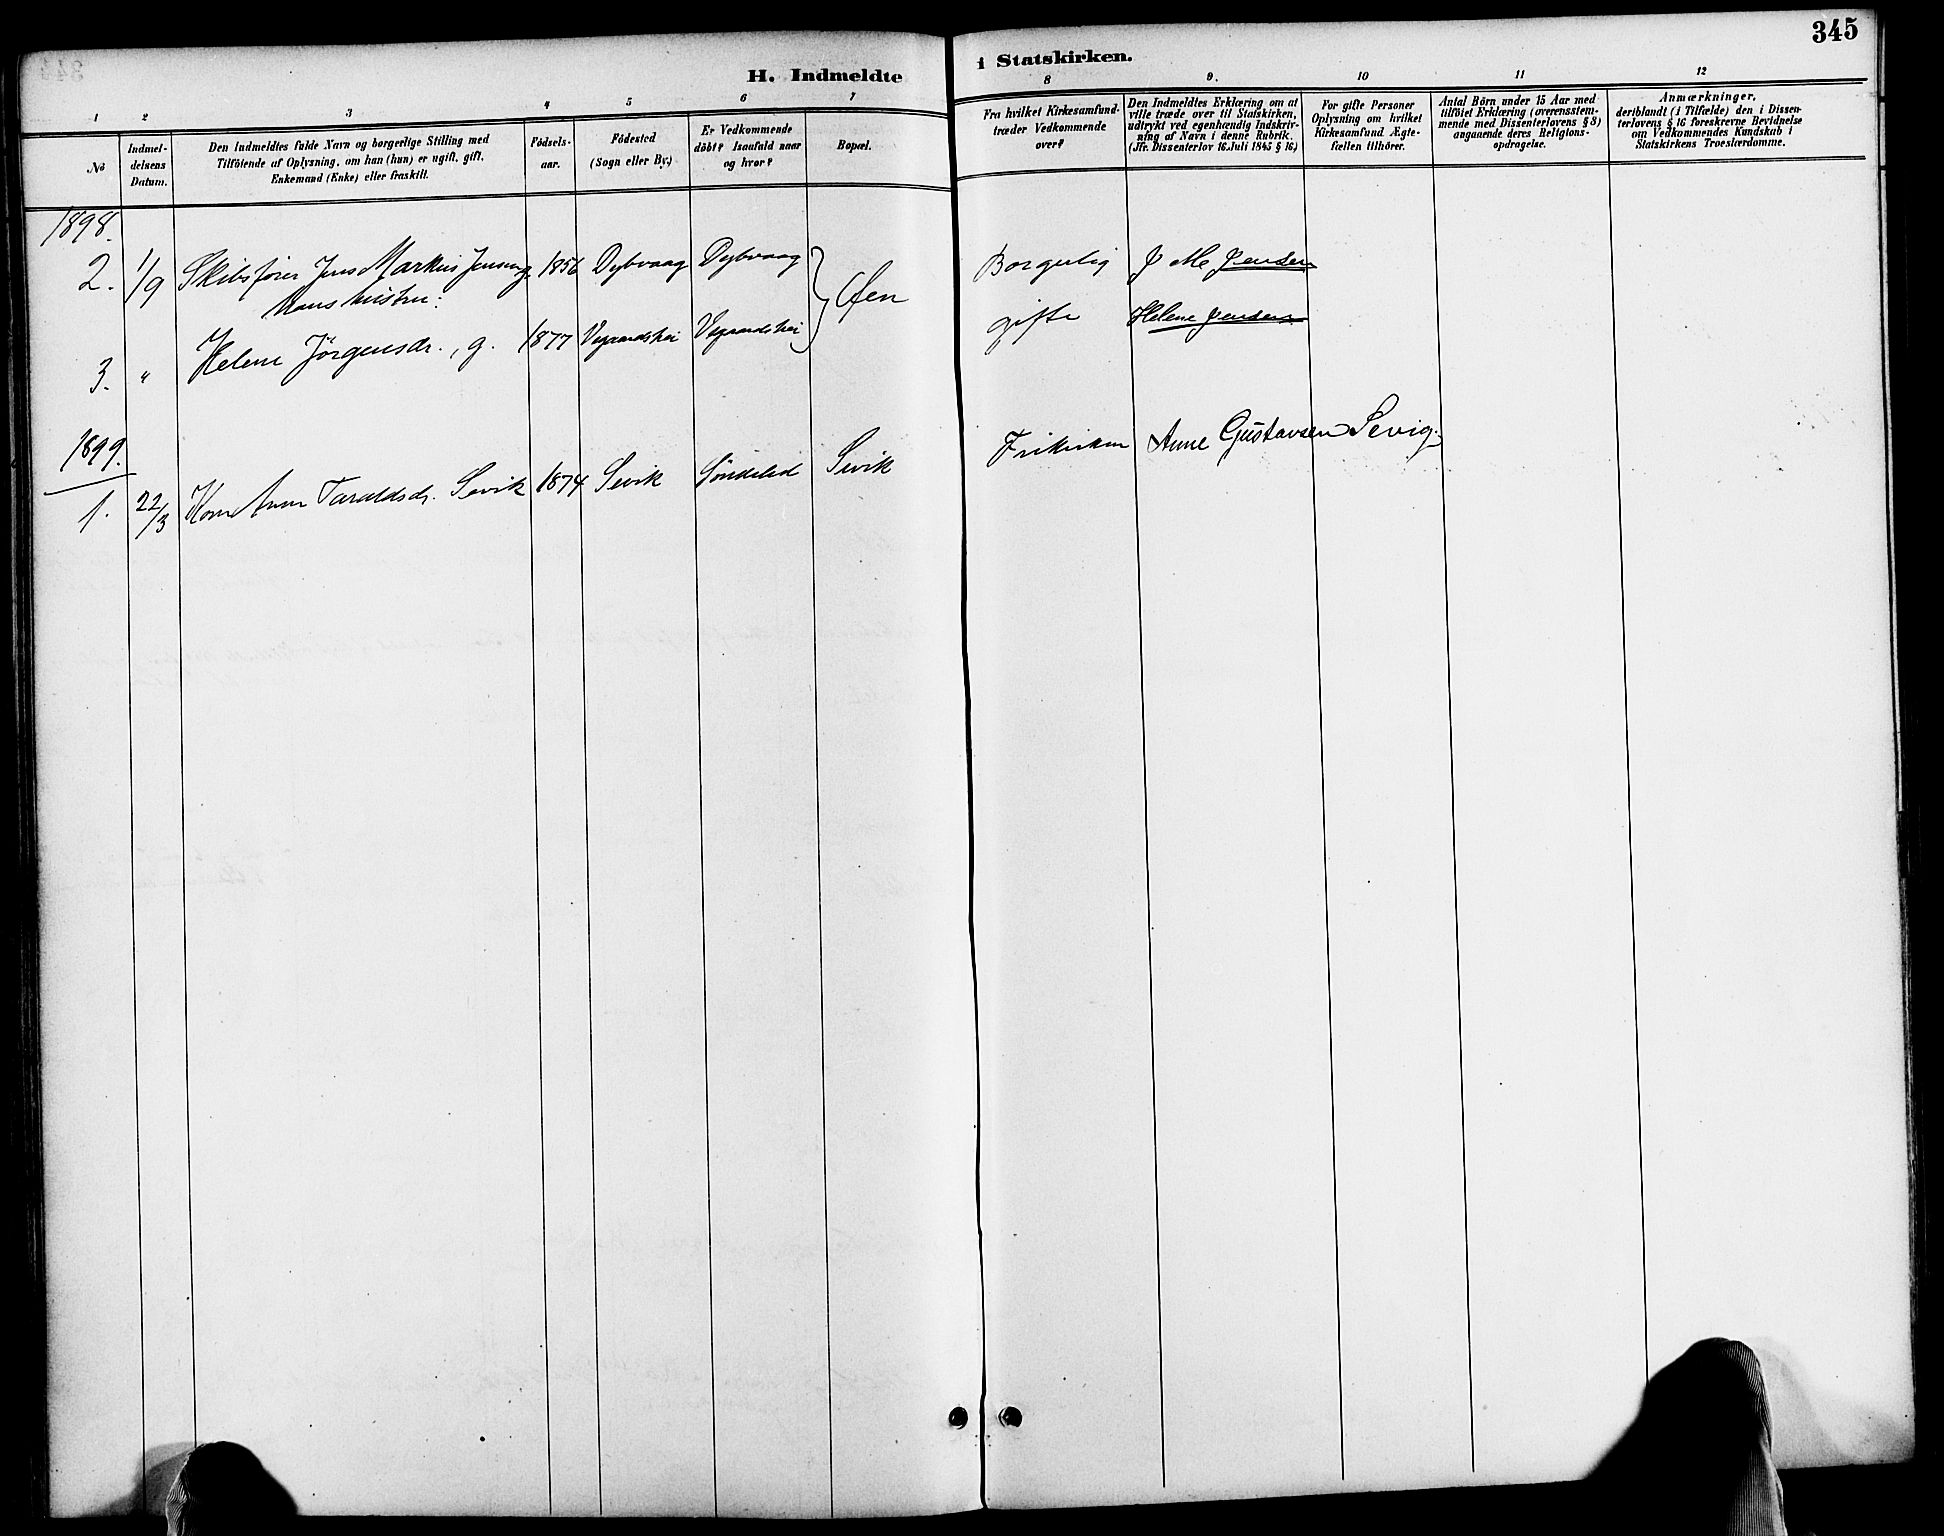 345
H. Indmeldte i Statskirken.
1 2 3 4 5 6 7 8 9. 10 11 12
No
Indmel-
delsens
Datum.
Den Indmeldtes fulde Navn og borgerlige Stilling med
Tilföiende af Oplysning, om han (hun) er ugift, gift,
Enkemand (Enke) eller fraskilt.
Födsels-
aar.
Födested
(Sogn eller By.)
Er Vedkommende
döbt? Isaafald naar
og hvor?
Bopæl.
Fra hvilket Kirkesamfund
træder Vedkommende
over?
Den Indmeldtes Erklæring om at
ville træde over til Statskirken,
udtrykt ved egenhændig Indskriv-
ning af Navn i denne Rubrik.
(Jfr. Dissenterlov 16. Juli 1845 § 16.)
For gifte Personer
Oplysning om hvilket
Kirkesamfund Ægte-
fællen tilhörer.
Antal Börn under 15 Aar med
tilföiet Erklæring (overensstem-
mende med Dissenterlovens § 8)
angaaende deres Religions-
opdragelse.
Anmærkninger,
deriblandt (i Tilfælde) den i Dissen-
terlovens § 16 foreskrevne Bevidnelse
om Vedkommendes Kundskab i
Statskirkens Troeslærdomme.
1898.
2. 1/9 Skibsfører Jens Markus Jensen g. 1856 Dybvaag Dybvaag Øen Borgerlig J M Jensen
hans hustru:
3. " Helene Jørgensdr., g. 1877 Vegaardshei Vegaardshei gifte Helene Jensen
1899.
1. 22/3 Kone Anne Taraldsdr. Sevik 1874 Sevik Søndeled Sevik Frikirken Anne Gustavsen Sevig.